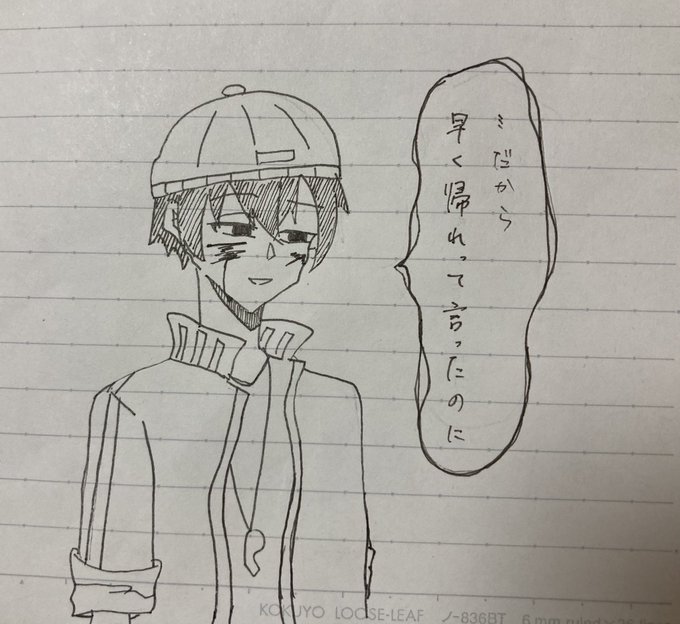 …だから
早く帰れって言ったのに
KOKUYO LOOSE-LEAF ノ-836BT 6 mm ruled